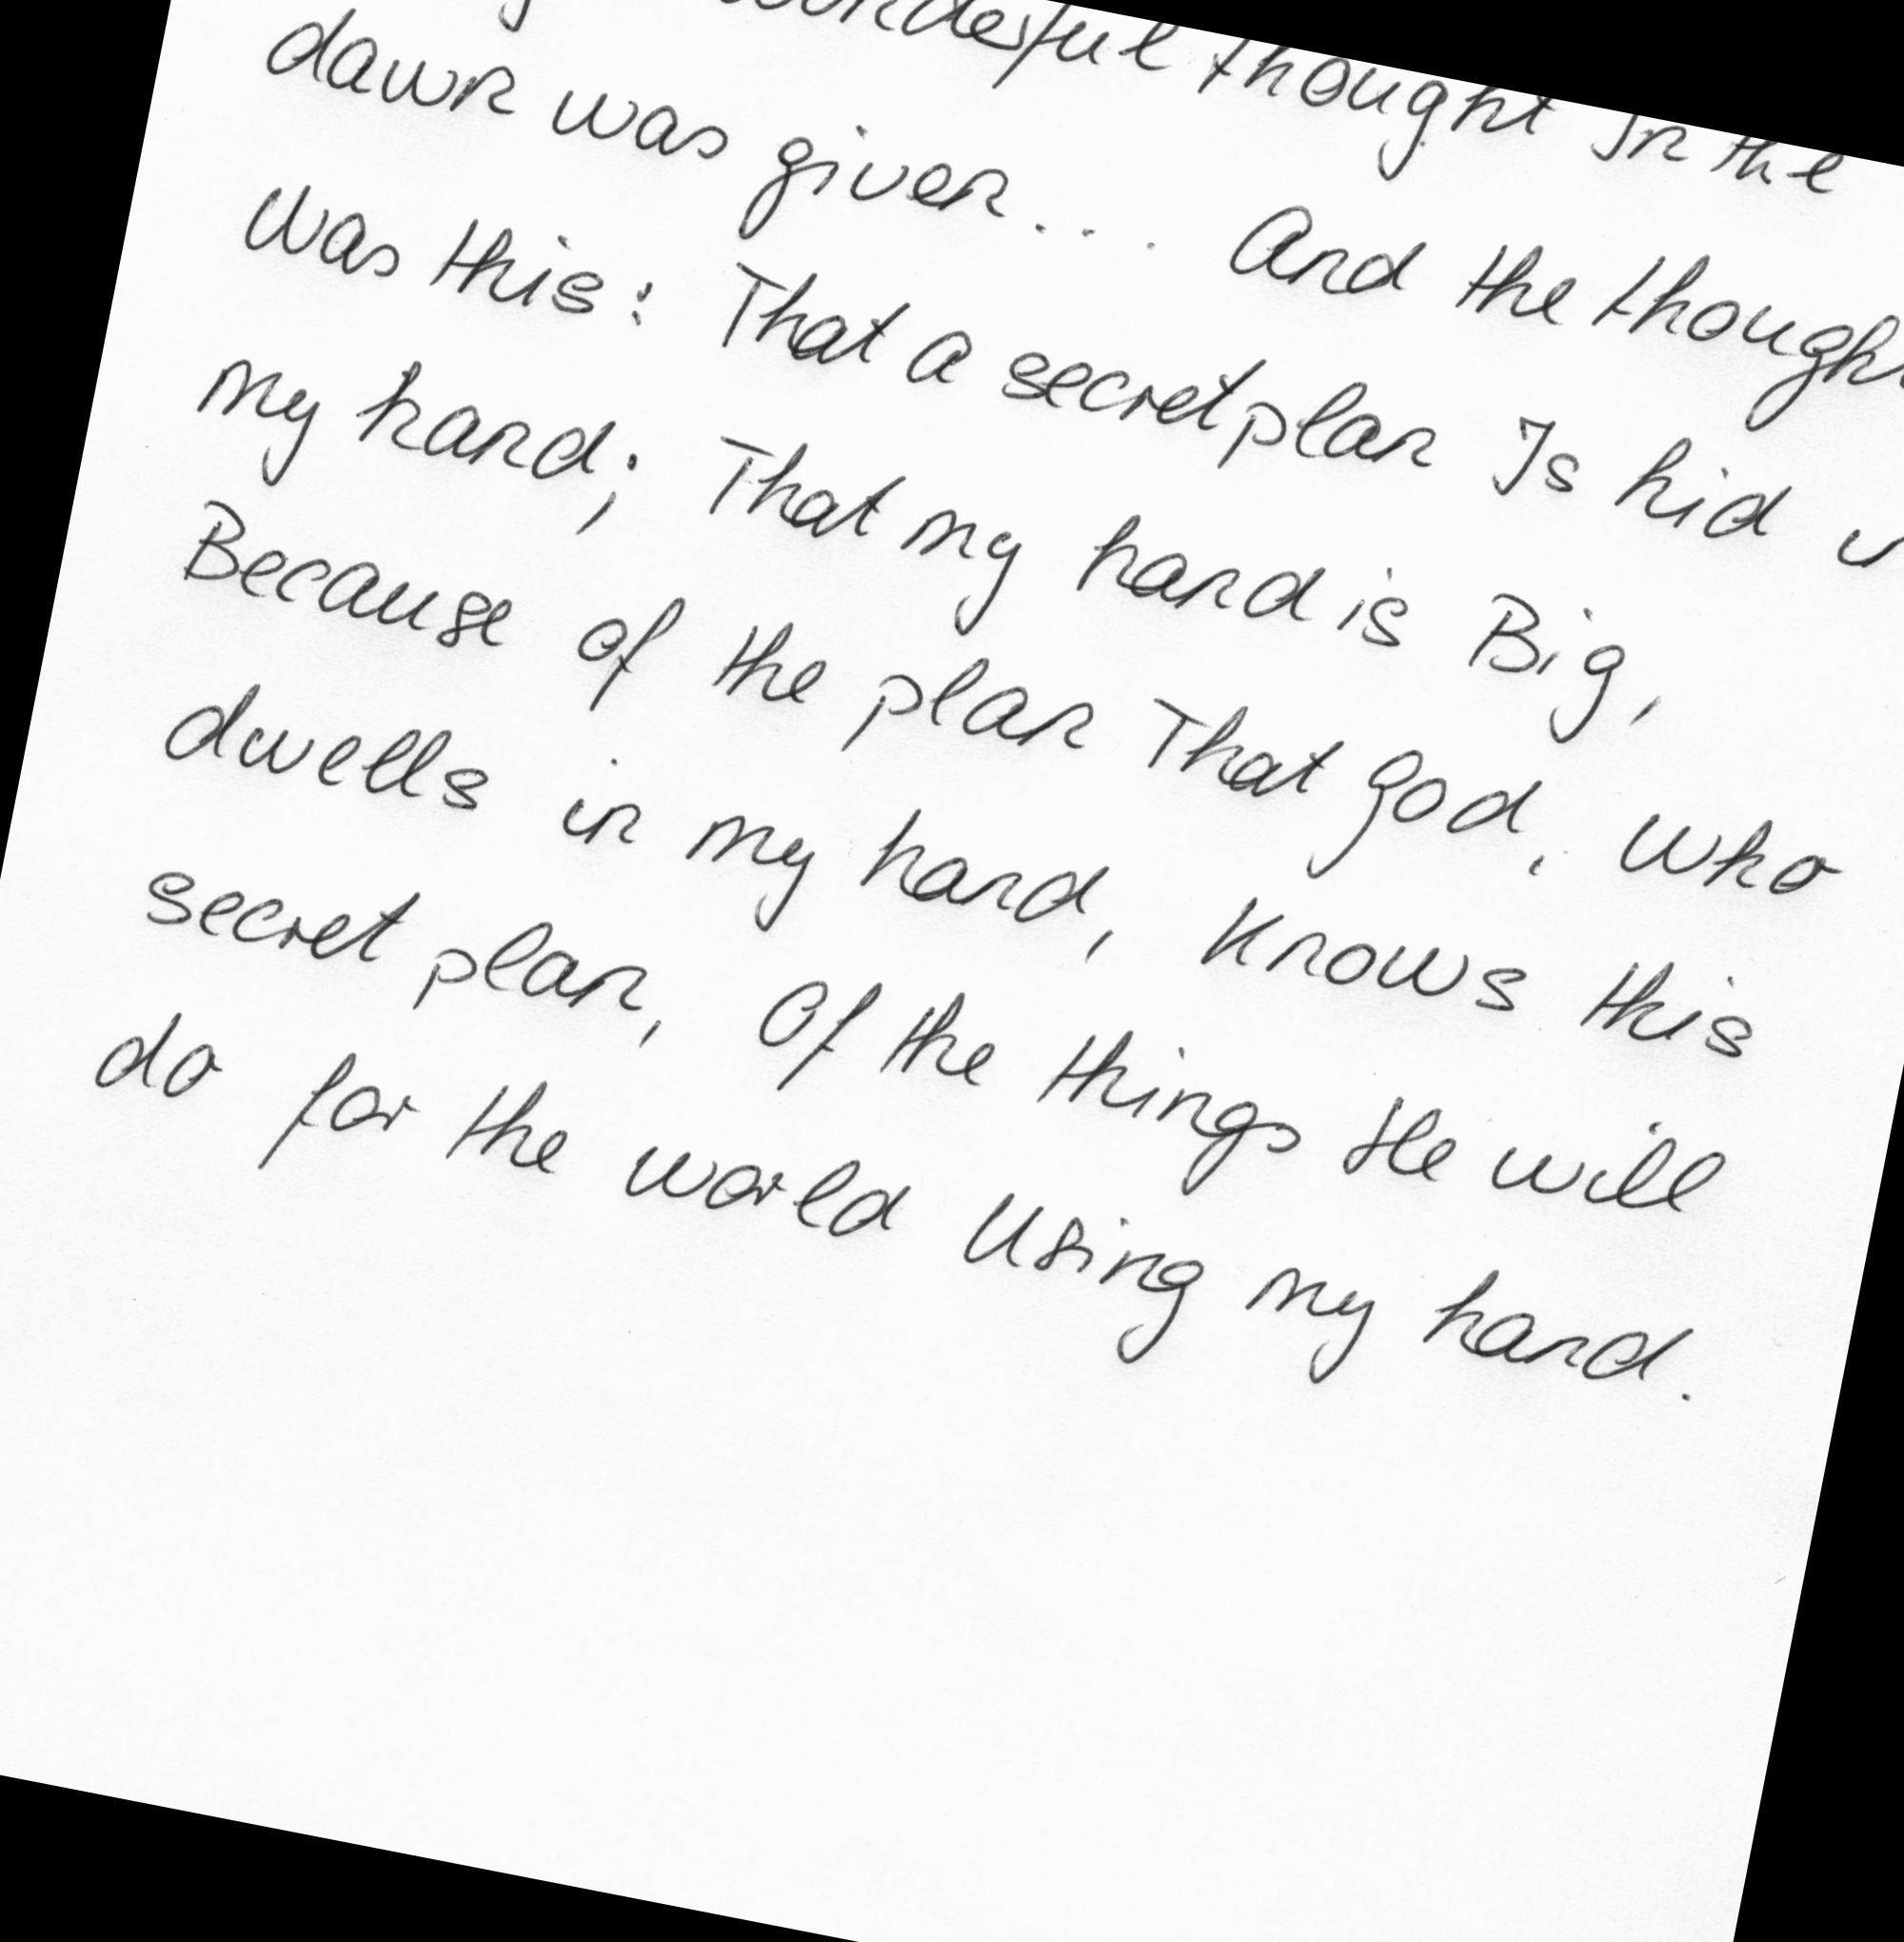 wonderful thought In the
dawn was given... And the thought
was this: That a secret plan Is hid
my hand; That my hand is Big,
Because of the plan That God, Who
dwells in my hand, Knows this
secret plan, Of the things He will
do for the world Using my hand.